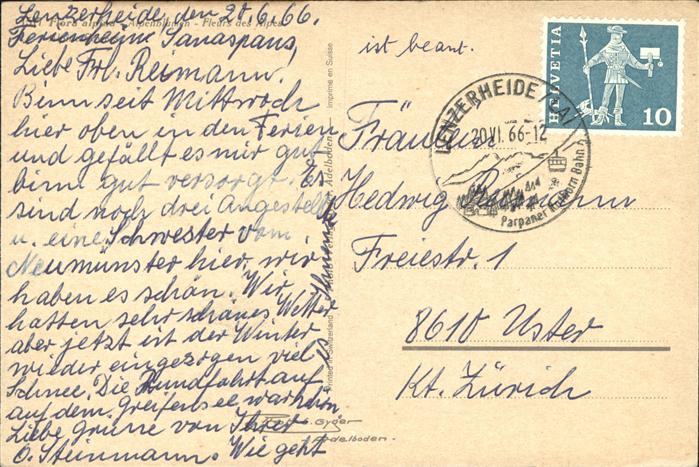 Lenzerheide, den 20.6.66.
Flora alpina - Alpenblumen - Fleurs des Alpes
Ferienheim, Sanaspans,
Liebe Frl. Reimann.
Binn seit Mittwoch
hier oben in den Ferien
und gefällt es mir gut
binn gut versorgt. Es
sind noch drei Angestellt
u. eine Schwester vom
Neumünster hier, wir
haben es schön. Wir
hatten sehr schönes Wetter
aber jetzt ist der Winter
wieder eingezogen viel
Schnee. Die Rundfahrt auf
auf dem Greifensee war schön
Liebe grüne von Ihrer
O. Steinmann. Wie geht
es Ihnen
Printed in Switzerland
Adelboden
Imprimé en Suisse
Gyger
Adelboden.
ist beant.
HELVETIA
10
LENZERHEIDE
20.VI.66-12
Parpaner Rothorn Bahn
Fräulein
Hedwig Reimann
Freiestr. 1
8610 Uster
Kt. Zürich